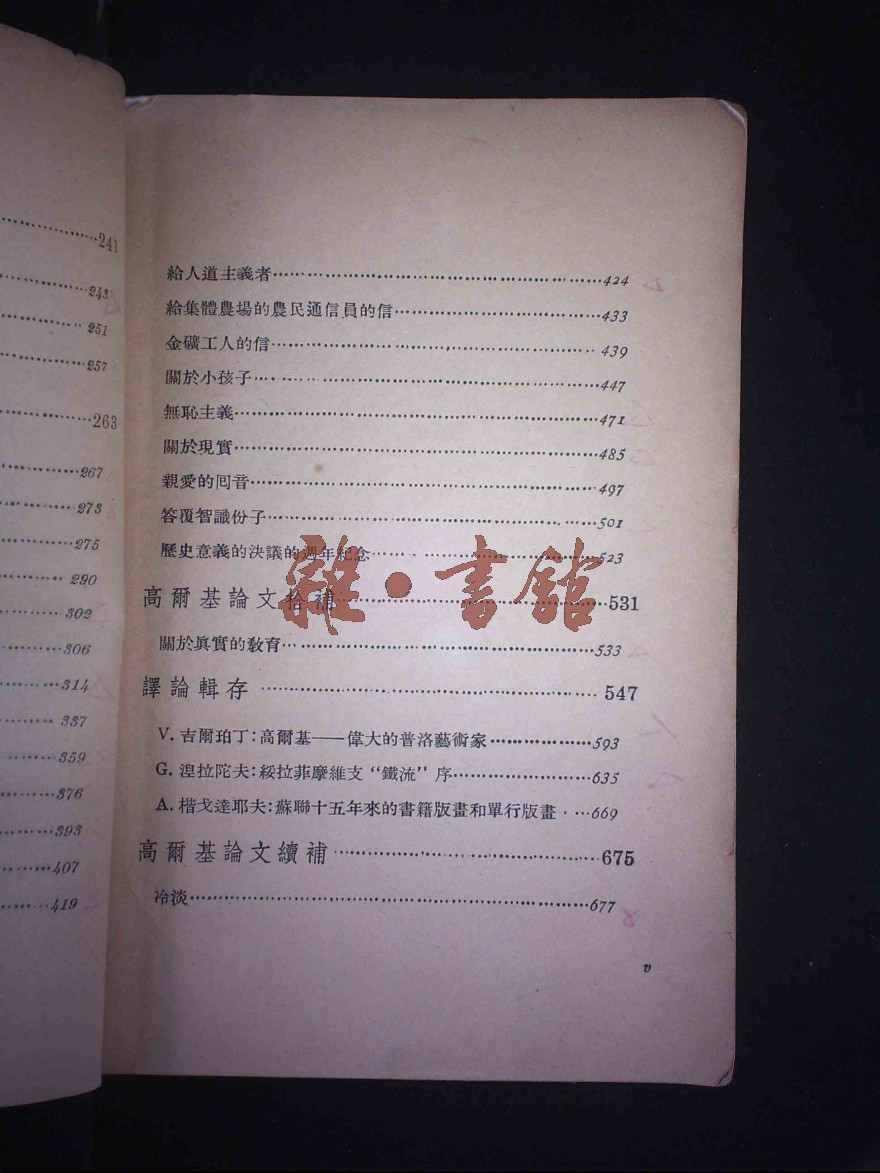 241
243
251
257
263
267
273
275
290
302
306
314
337
359
376
393
407
419
給人道主義者……424
給集體農場的農民通信員的信……433
金礦工人的信……439
關於小孩子……447
無恥主義……471
關於現實……485
親愛的囘音……497
答覆智識份子……501
歷史意義的決議的週年紀念……523
高爾基論文拾補……531
關於眞實的敎育……533
譯論輯存……547
V. 吉爾珀丁：高爾基——偉大的普洛藝術家……593
G. 湼拉陀夫：綏拉菲摩維支“鐵流”序……635
A. 楷戈達耶夫：蘇聯十五年來的書籍版畫和單行版畫……669
高爾基論文續補……675
冷淡……677
v
雜·書館